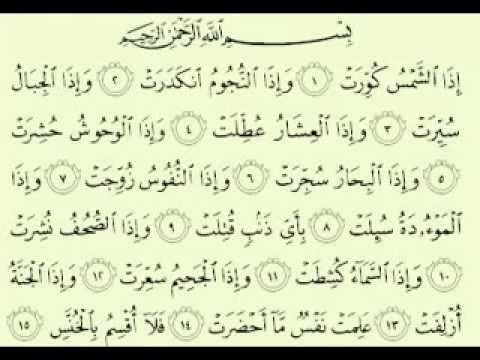 بِسْمِ ٱللَّهِ ٱلرَّحْمَٰنِ ٱلرَّحِيمِ
إِذَا ٱلشَّمْسُ كُوِّرَتْ ١ وَإِذَا ٱلنُّجُومُ ٱنكَدَرَتْ ٢ وَإِذَا ٱلْجِبَالُ
سُيِّرَتْ ٣ وَإِذَا ٱلْعِشَارُ عُطِّلَتْ ٤ وَإِذَا ٱلْوُحُوشُ حُشِرَتْ
٥ وَإِذَا ٱلْبِحَارُ سُجِّرَتْ ٦ وَإِذَا ٱلنُّفُوسُ زُوِّجَتْ ٧ وَإِذَا
ٱلْمَوْءُۥدَةُ سُئِلَتْ ٨ بِأَيِّ ذَنۢبٍ قُتِلَتْ ٩ وَإِذَا ٱلصُّحُفُ نُشِرَتْ
١٠ وَإِذَا ٱلسَّمَآءُ كُشِطَتْ ١١ وَإِذَا ٱلْجَحِيمُ سُعِّرَتْ ١٢ وَإِذَا ٱلْجَنَّةُ
أُزْلِفَتْ ١٣ عَلِمَتْ نَفْسٌ مَّآ أَحْضَرَتْ ١٤ فَلَآ أُقْسِمُ بِٱلْخُنَّسِ ١٥